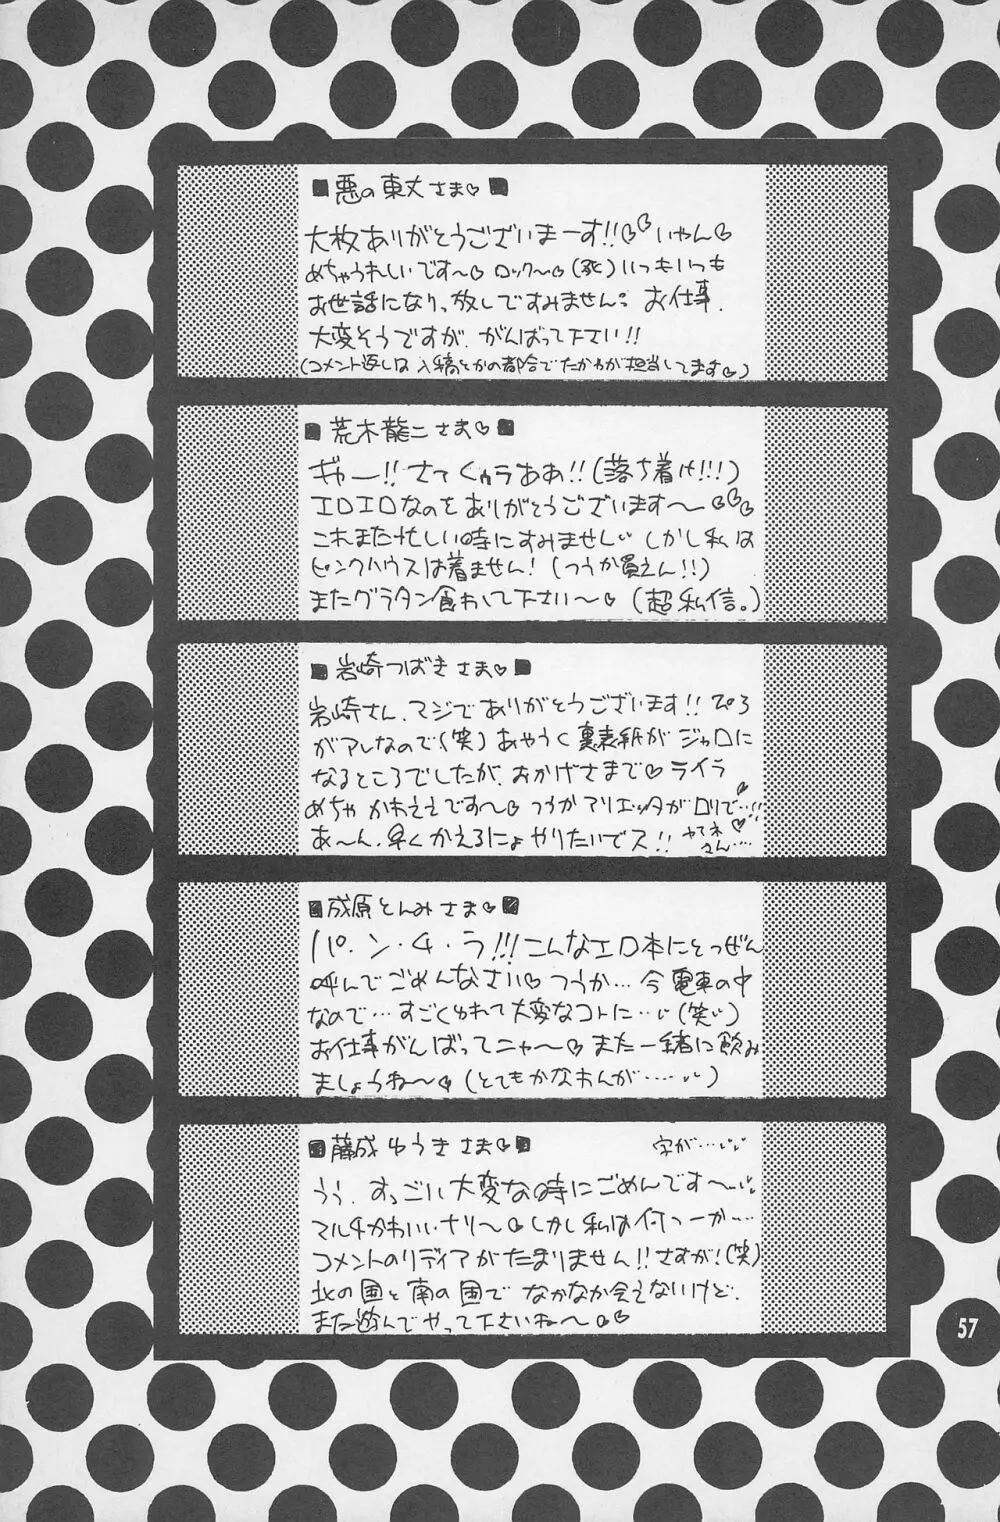 ■悪の東丈さま♡■
大枚ありがとうございまーす!!♡♡いやん♡
めちゃうれしいです〜♡ロック〜♡(死)いつもいつも
お世話になりっ放しですみません。お仕事、
大変そうですが、がんばって下さい!!
(コメント返しは入稿とかの都合でたかやが担当してます♡)
■荒木龍二さま♡■
ギャー!!さてくゥラああ!!(落ち着け!!!)
エロエロなのをありがとうございます〜♡♡♡
これまた忙しい時にすみません〃しかし私は
ピンクハウスは着ません!(つうか買えん!!)
またグラタン食わして下さい〜♡(超私信。)
■岩崎つばきさま♡■
岩崎さん、マジでありがとうございます!!
がアレなので(笑)あやうく裏表紙がジャロに
なるところでしたが、おかげさまで♡ライラ
めちゃかわええです〜♡つうかアリエッタがロリで…!!
あ〜ん、早くかえるにょやりたいでス!!
■成原とんみさま♡■
パ・ン・チ・ラ!!!こんなエロ本にとつぜん
呼んでごめんなさい♡つうか…今電車の中
なので…すごくゆれて大変なコトに…〃(笑〃)
お仕事がんばってニャ〜♡また一緒に飲み
ましょうね〜♡(とてもかなわんが……〃)
■藤成ゆうきさま♡■ 字が…〃
うぅ、すっごい大変な時にごめんです〜〃
マルチかわいいナリ〜♡しかし私は何つーか…
コメントのリディアがたまりません!!さすが!(笑)
北の国と南の国でなかなか会えないけど、
また遊んでやって下さいね〜♡♡
57